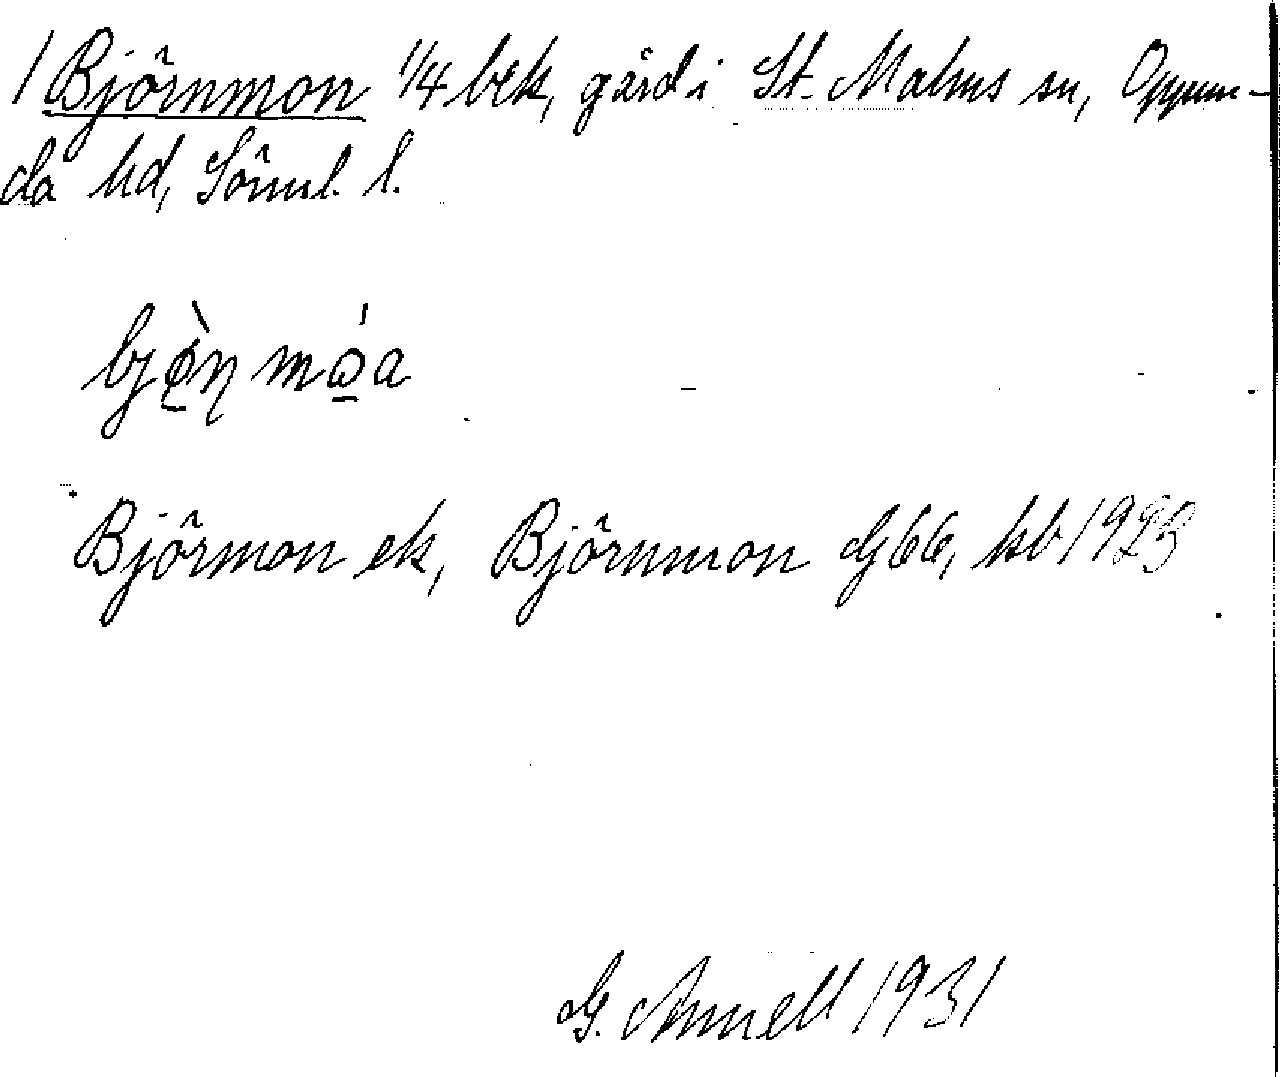 1 Björnmon 1/4 bek, gård i St. Malms sn, Oppun-
da hd, Sörml. l.
bjö̀ṇ mó̱a
Björmon ek, Björnmon G66, hsb 1923
G. Annell 1931